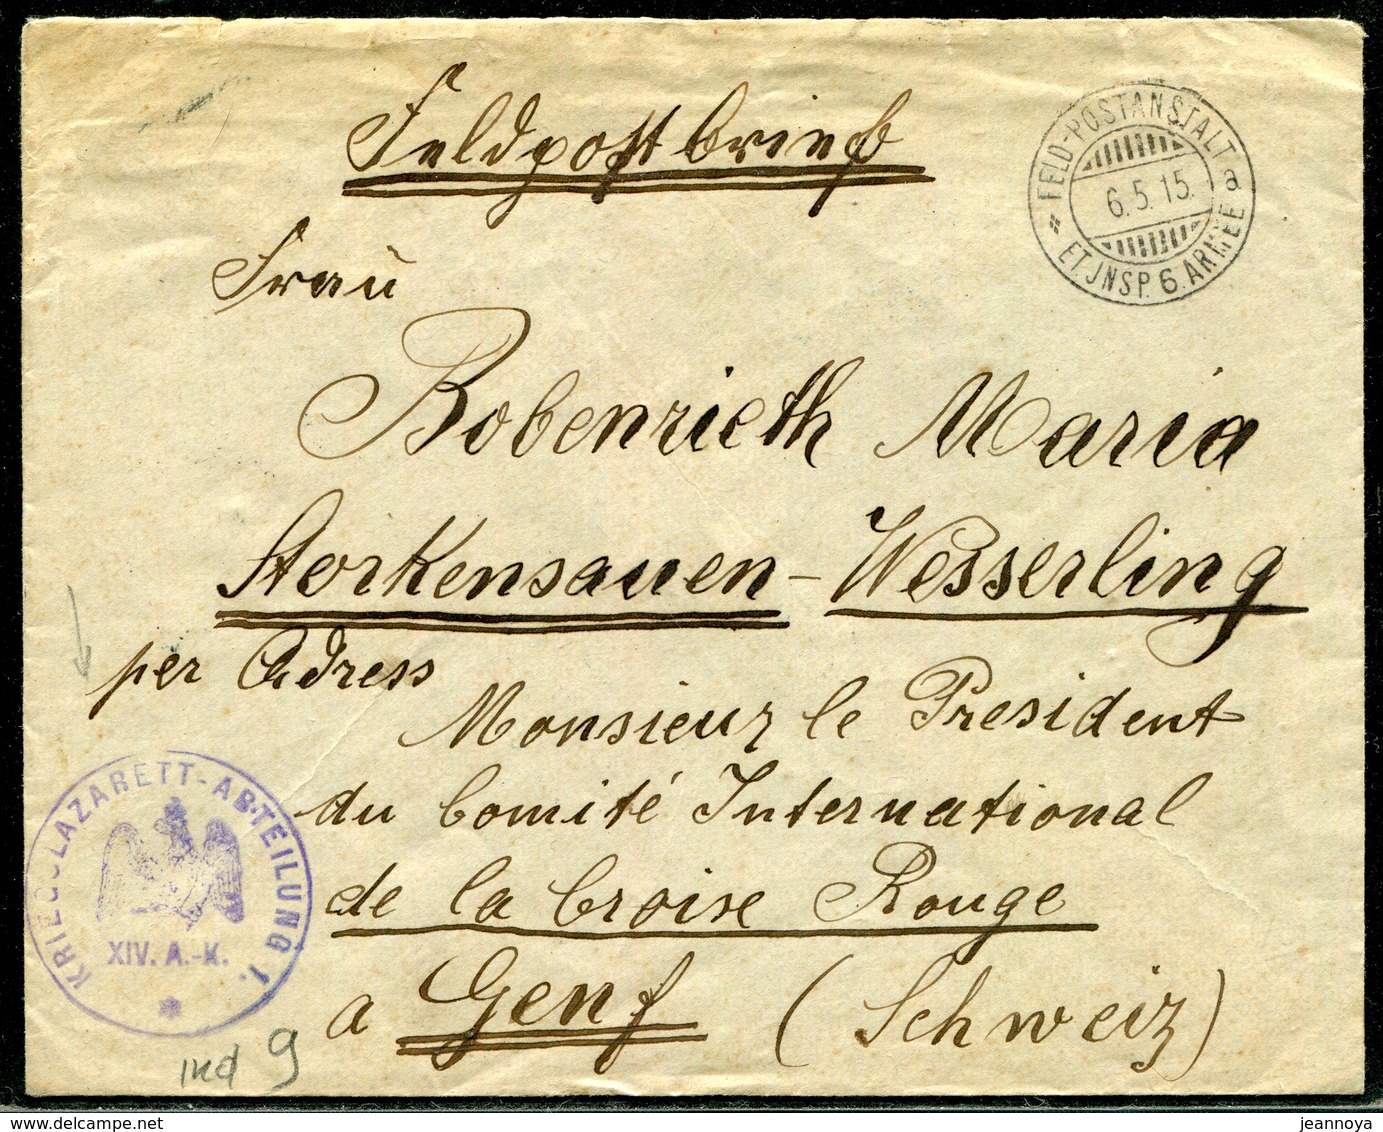 Feldpostbrief
FELD-POSTANSTALT a
6.5.15.
ET.JNSP. 6. ARMEE
Frau
Bobenrieth Maria
Storkensauen - Wesserling
per Adress
Monsieur le President
du Comité International
de la Croise Rouge
a Genf (Schweiz)
KRIEGSLAZARETT-ABTEILUNG I.
XIV. A.-K.
ind 9
www.delcampe.net
jeannoya